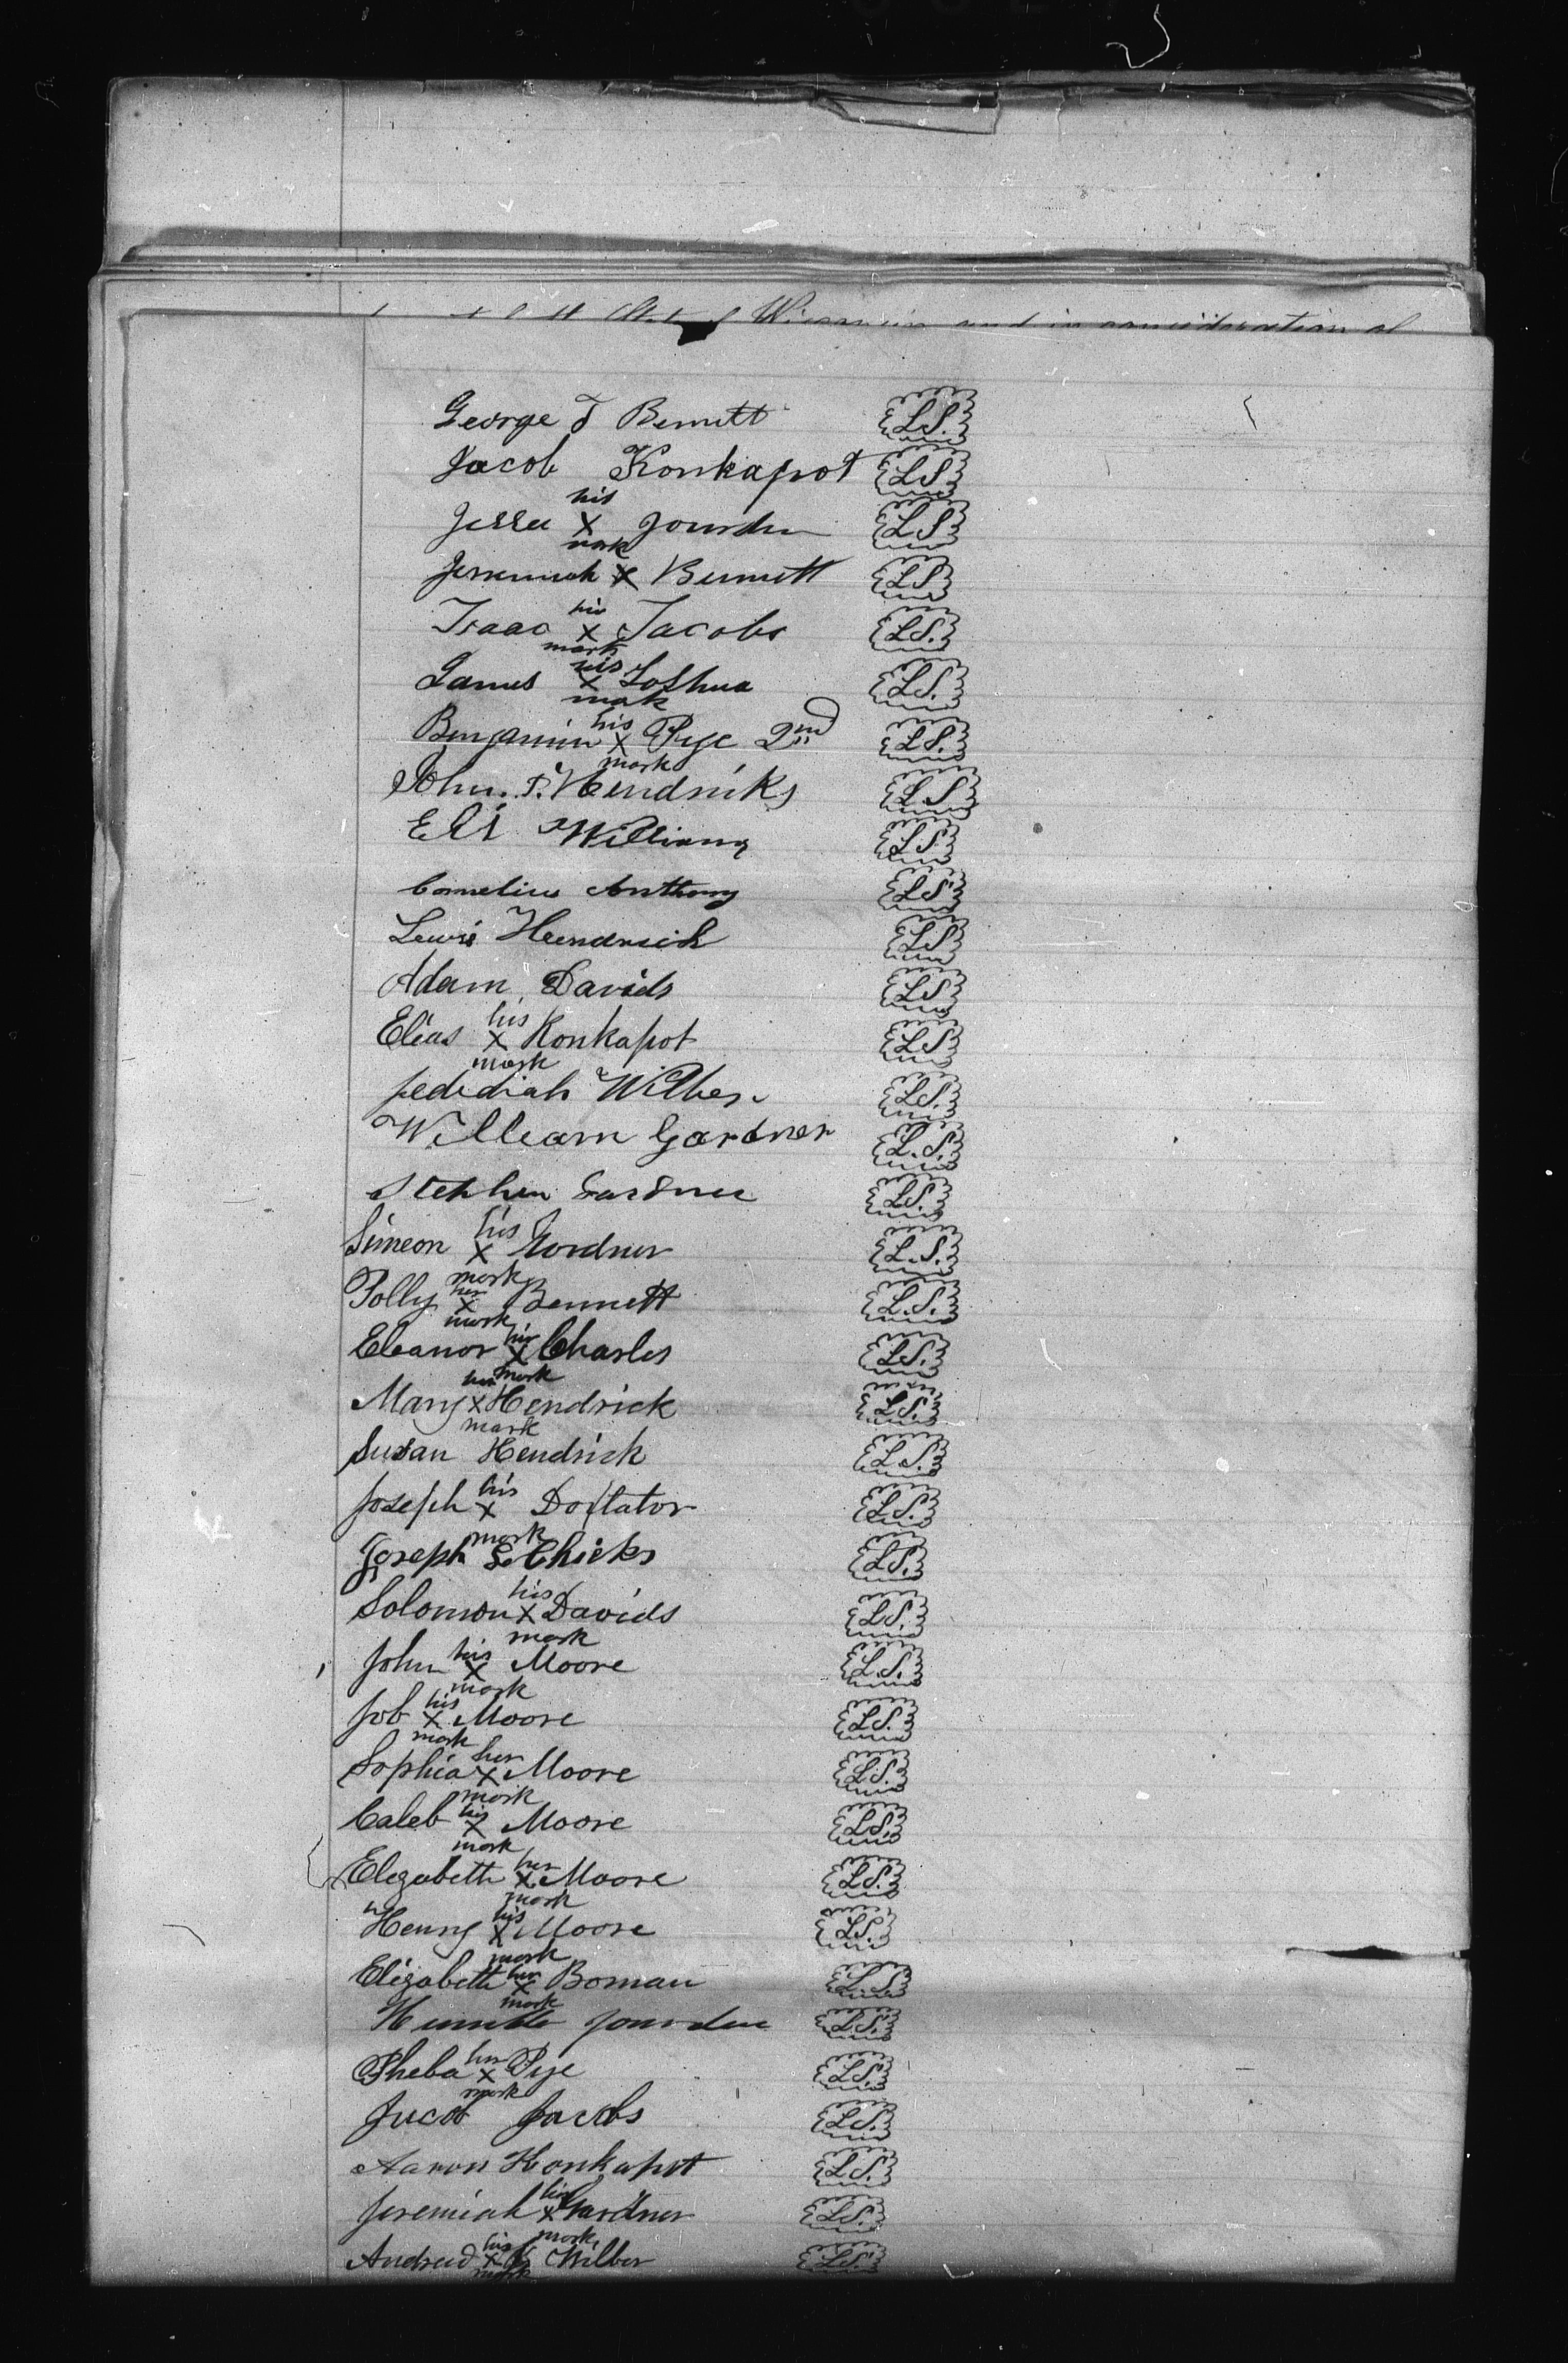 Wisconsin and in consideration of
George T Bennett L.S.
Jacob Konkapot L S
his
Jesse X Jourden L S
mark
Jeremiah X Bennett L S
his
Isaac X Jacobs L S.
mark
his
James X Joshua L S.
mark
his
Benjamin X Pye 2nd L S.
mark
John. P. Hendricks L S
Eli Williams L S
Cornelius Anthony L S
Lewis Hendrick L S
Adam Davids L S
his
Elias X Konkapot L S
mark
Jedediah Wilber L S.
William Gardner L. S.
Stephen Gardner L S.
his
Simeon X Gardner L. S.
mark
her
Polly X Bennett L. S.
mark
his
Eleanor X Charles L S.
mark
her
Mary X Hendrick L S.
mark
Susan Hendrick L S.
his
Joseph X Doxtator L S.
mark
Joseph L Chicks L S.
his
Solomon X Davids L S.
mark
his
John X Moore L. S.
mark
his
Job X Moore L S.
mark
her
Sophia X Moore L S.
mark
his
Caleb X Moore L S.
mark
her
Elezabeth X Moore L S.
mark
his
Henry X Moore L S.
mark
her
Elizabeth X Boman L. S
mark
Jourden L S.
her
Pheba X Pye L S.
mark
Jacob Jacobs L S.
Aaron Konkapot L S.
his
Jeremiah X Gardner L S.
mark
his
Andrew X Wilber L S.
mark